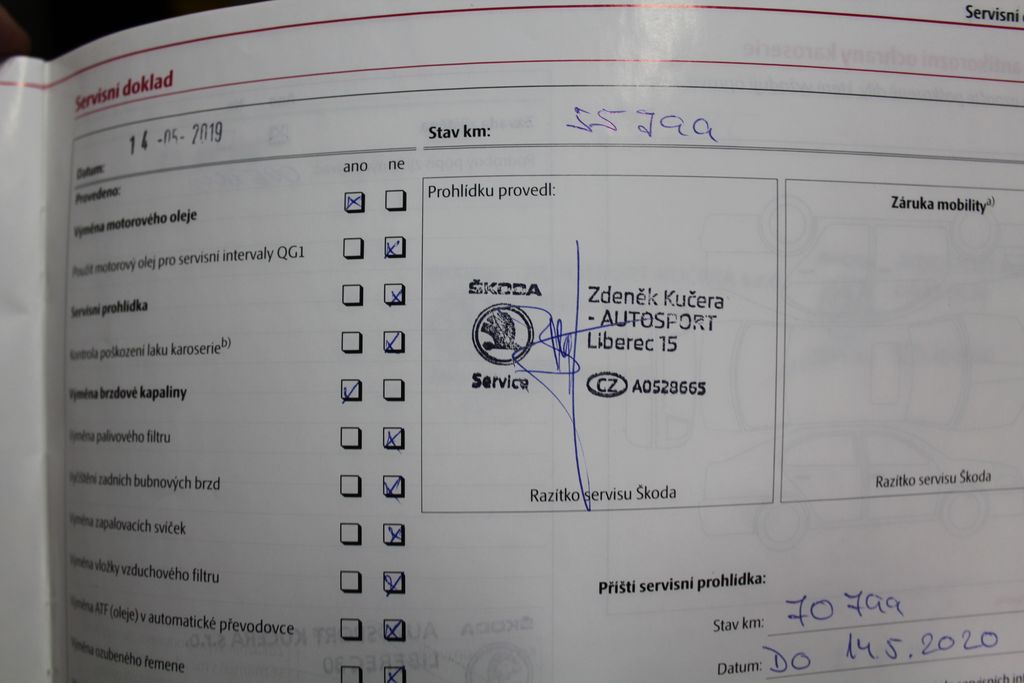 Servisní
Servisní doklad
Datum: 14 -05- 2019
Stav km: 55 799
Provedeno: ano ne
Výměna motorového oleje
Použit motorový olej pro servisní intervaly QG1
Servisní prohlídka
Kontrola poškození laku karoserie b)
Výměna brzdové kapaliny
Výměna palivového filtru
Vyčištění zadních bubnových brzd
Výměna zapalovacích svíček
Výměna vložky vzduchového filtru
Výměna ATF (oleje) v automatické převodovce
Výměna ozubeného řemene
Prohlídku provedl:
ŠKODA
Service
Zdeněk Kučera
- AUTOSPORT
Liberec 15
CZ A0528665
Razítko servisu Škoda
Záruka mobility a)
Razítko servisu Škoda
Příští servisní prohlídka:
Stav km: 70 799
Datum: DO 14.5.2020